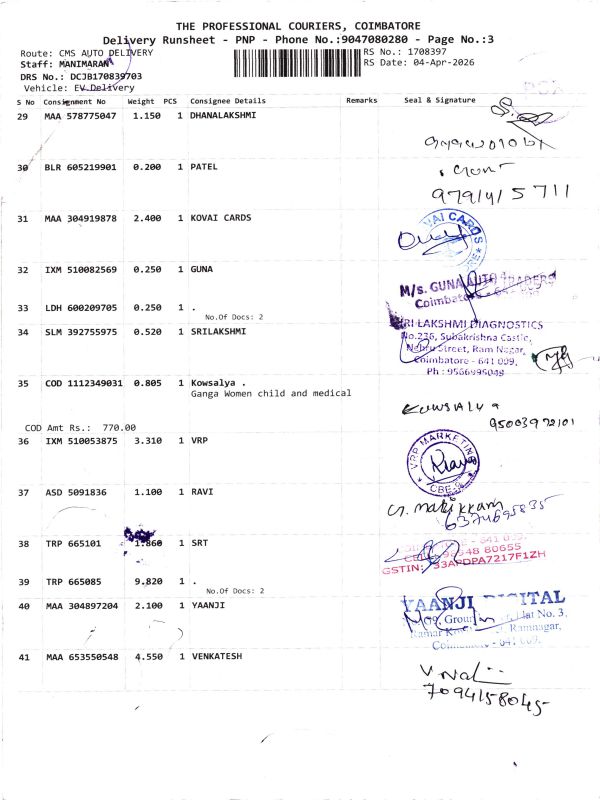 THE PROFESSIONAL COURIERS, COIMBATORE
Delivery Runsheet - PNP - Phone No.:9047080280 - Page No.:3
Route: CMS AUTO DELIVERY
RS No.: 1708397
Staff: MANIMARAN
RS Date: 04-Apr-2026
DRS No.: DCJB170839703
Vehicle: EV Delivery
S No Consignment No Weight PCS Consignee Details Remarks Seal & Signature
29 MAA 578775047 1.150 1 DHANALAKSHMI
30 BLR 605219901 0.200 1 PATEL
31 MAA 304919878 2.400 1 KOVAI CARDS
VAI CARDS
32 IXM 510082569 0.250 1 GUNA
M/s. GUNA AUTO TRADERS
Coimbatore - 641 009.
33 LDH 600209705 0.250 1 .
No.Of Docs: 2
34 SLM 392755975 0.520 1 SRILAKSHMI
SRI LAKSHMI DIAGNOSTICS
No.236, Subakrishna Castle,
Nehru Street, Ram Nagar,
Coimbatore - 641 009.
Ph : 9566995048
35 COD 1112349031 0.805 1 Kowsalya .
Ganga Women child and medical
Kowsalya
95003972101
COD Amt Rs.: 770.00
36 IXM 510053875 3.310 1 VRP
VRP MARKETING
CBE-9
37 ASD 5091836 1.100 1 RAVI
6374695835
38 TRP 665101 1.860 1 SRT
80655
GSTIN: 33AFDPA7217F1ZH
39 TRP 665085 9.820 1 .
No.Of Docs: 2
40 MAA 304897204 2.100 1 YAANJI
YAANJI DIGITAL
No. 3,
Ramnagar,
Coimbatore - 641 009.
41 MAA 653550548 4.550 1 VENKATESH
7094158045